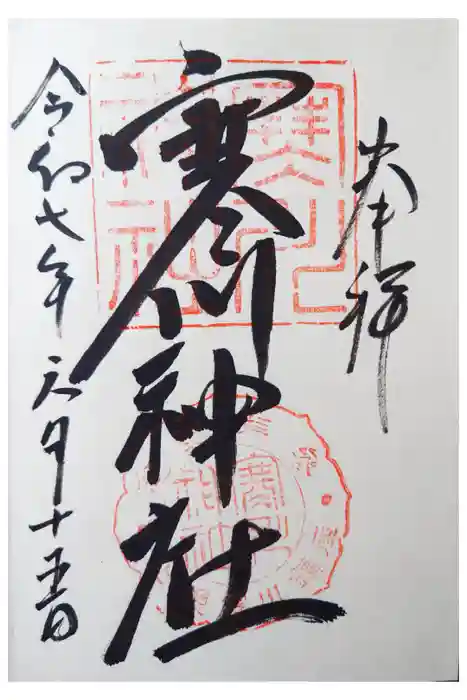 奉拝
寒川神社
令和七年六月十五日